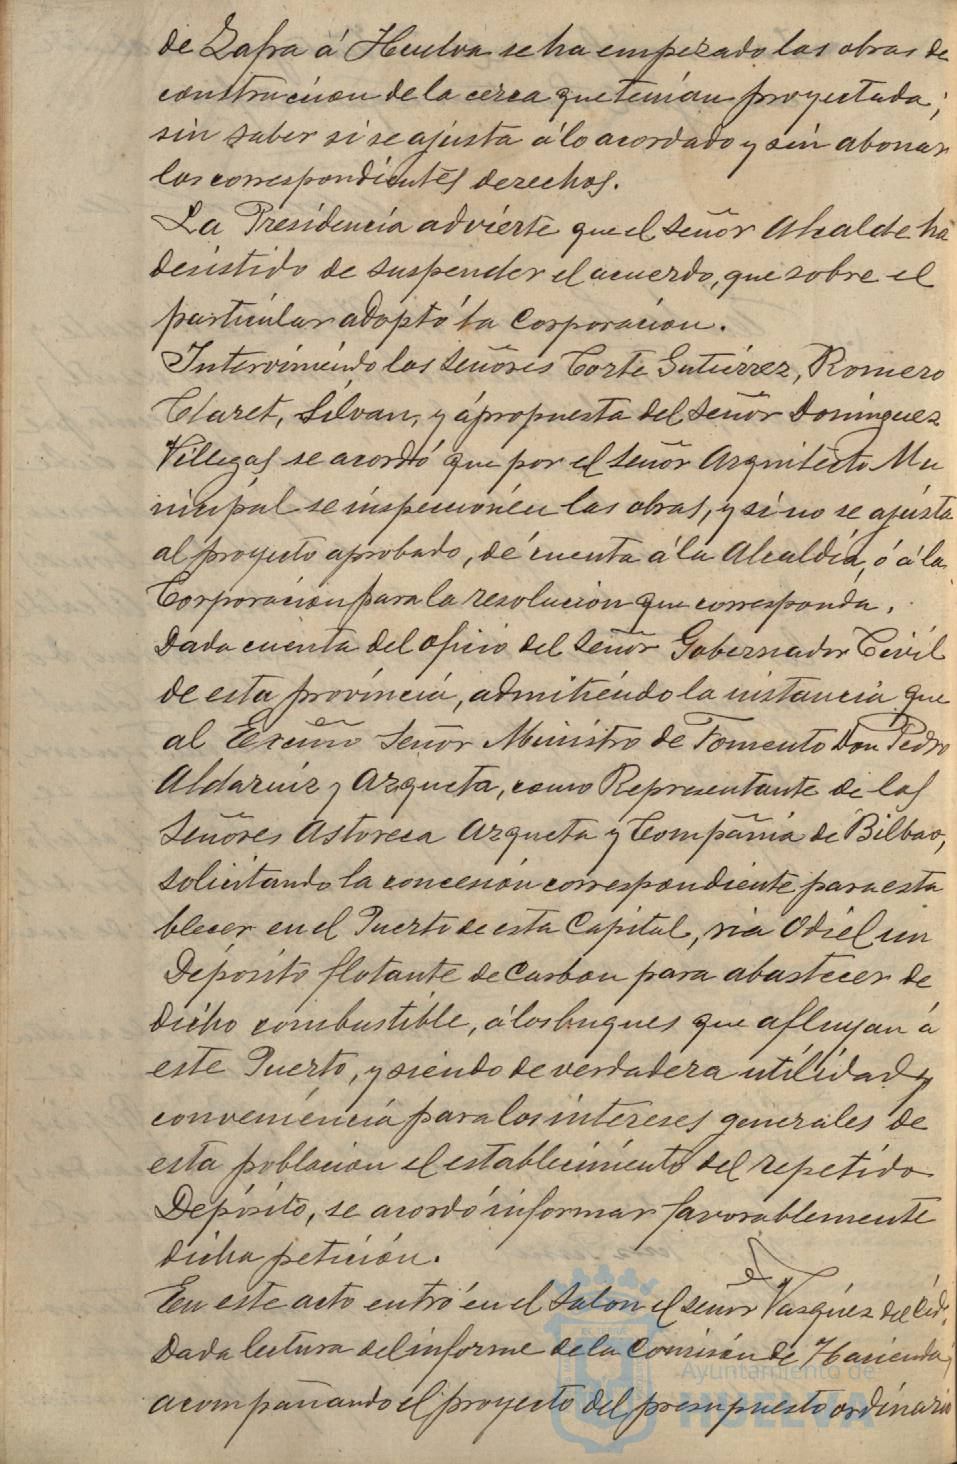 de Zafra á Huelva se ha empezado las obras de
construcción de la cerca que tenían proyectada;
sin saber si se ajusta á lo acordado y sin abonar
los correspondientes derechos.
La Presidencia advierte que el Señor Alcalde ha
desistido de suspender el acuerdo, que sobre el
particular adoptó la Corporación.
Interviniendo los Señores Corte Gutiérrez, Romero
Claret, Silvan, y á propuesta del Señor Dominguez
Villegas se acordó que por el Señor Arquitecto Mu
nicipal se inspeccionen las obras, y si no se ajusta
al proyecto aprobado, dé cuenta á la Alcaldía, ó á la
Corporación para la resolución que corresponda.
Dada cuenta del oficio del Señor Gobernador Civil
de esta provincia, admitiendo la instancia que
al Excmo Señor Ministro de Fomento Don Pedro
Aldamiz y Arqueta, como Representante de los
Señores Astoreca Arqueta y Compañia de Bilbao,
solicitando la concesión correspondiente para esta
blecer en el Puerto de esta Capital, ria Odiel un
Depósito flotante de Carbon para abastecer de
dicho combustible, á los buques que afluyan á
este Puerto, y siendo de verdadera utilidad y
conveniencia para los intereses generales de
esta poblacion el establecimiento del repetido
Depósito, se acordó informar favorablemente
dicha petición.
En este acto entró en el Salon el señor Vasquez del Cid.
Dada lectura del informe de la Comisión de Hacienda,
acompañando el proyecto del presupuesto ordinario
Ayuntamiento de
HUELVA